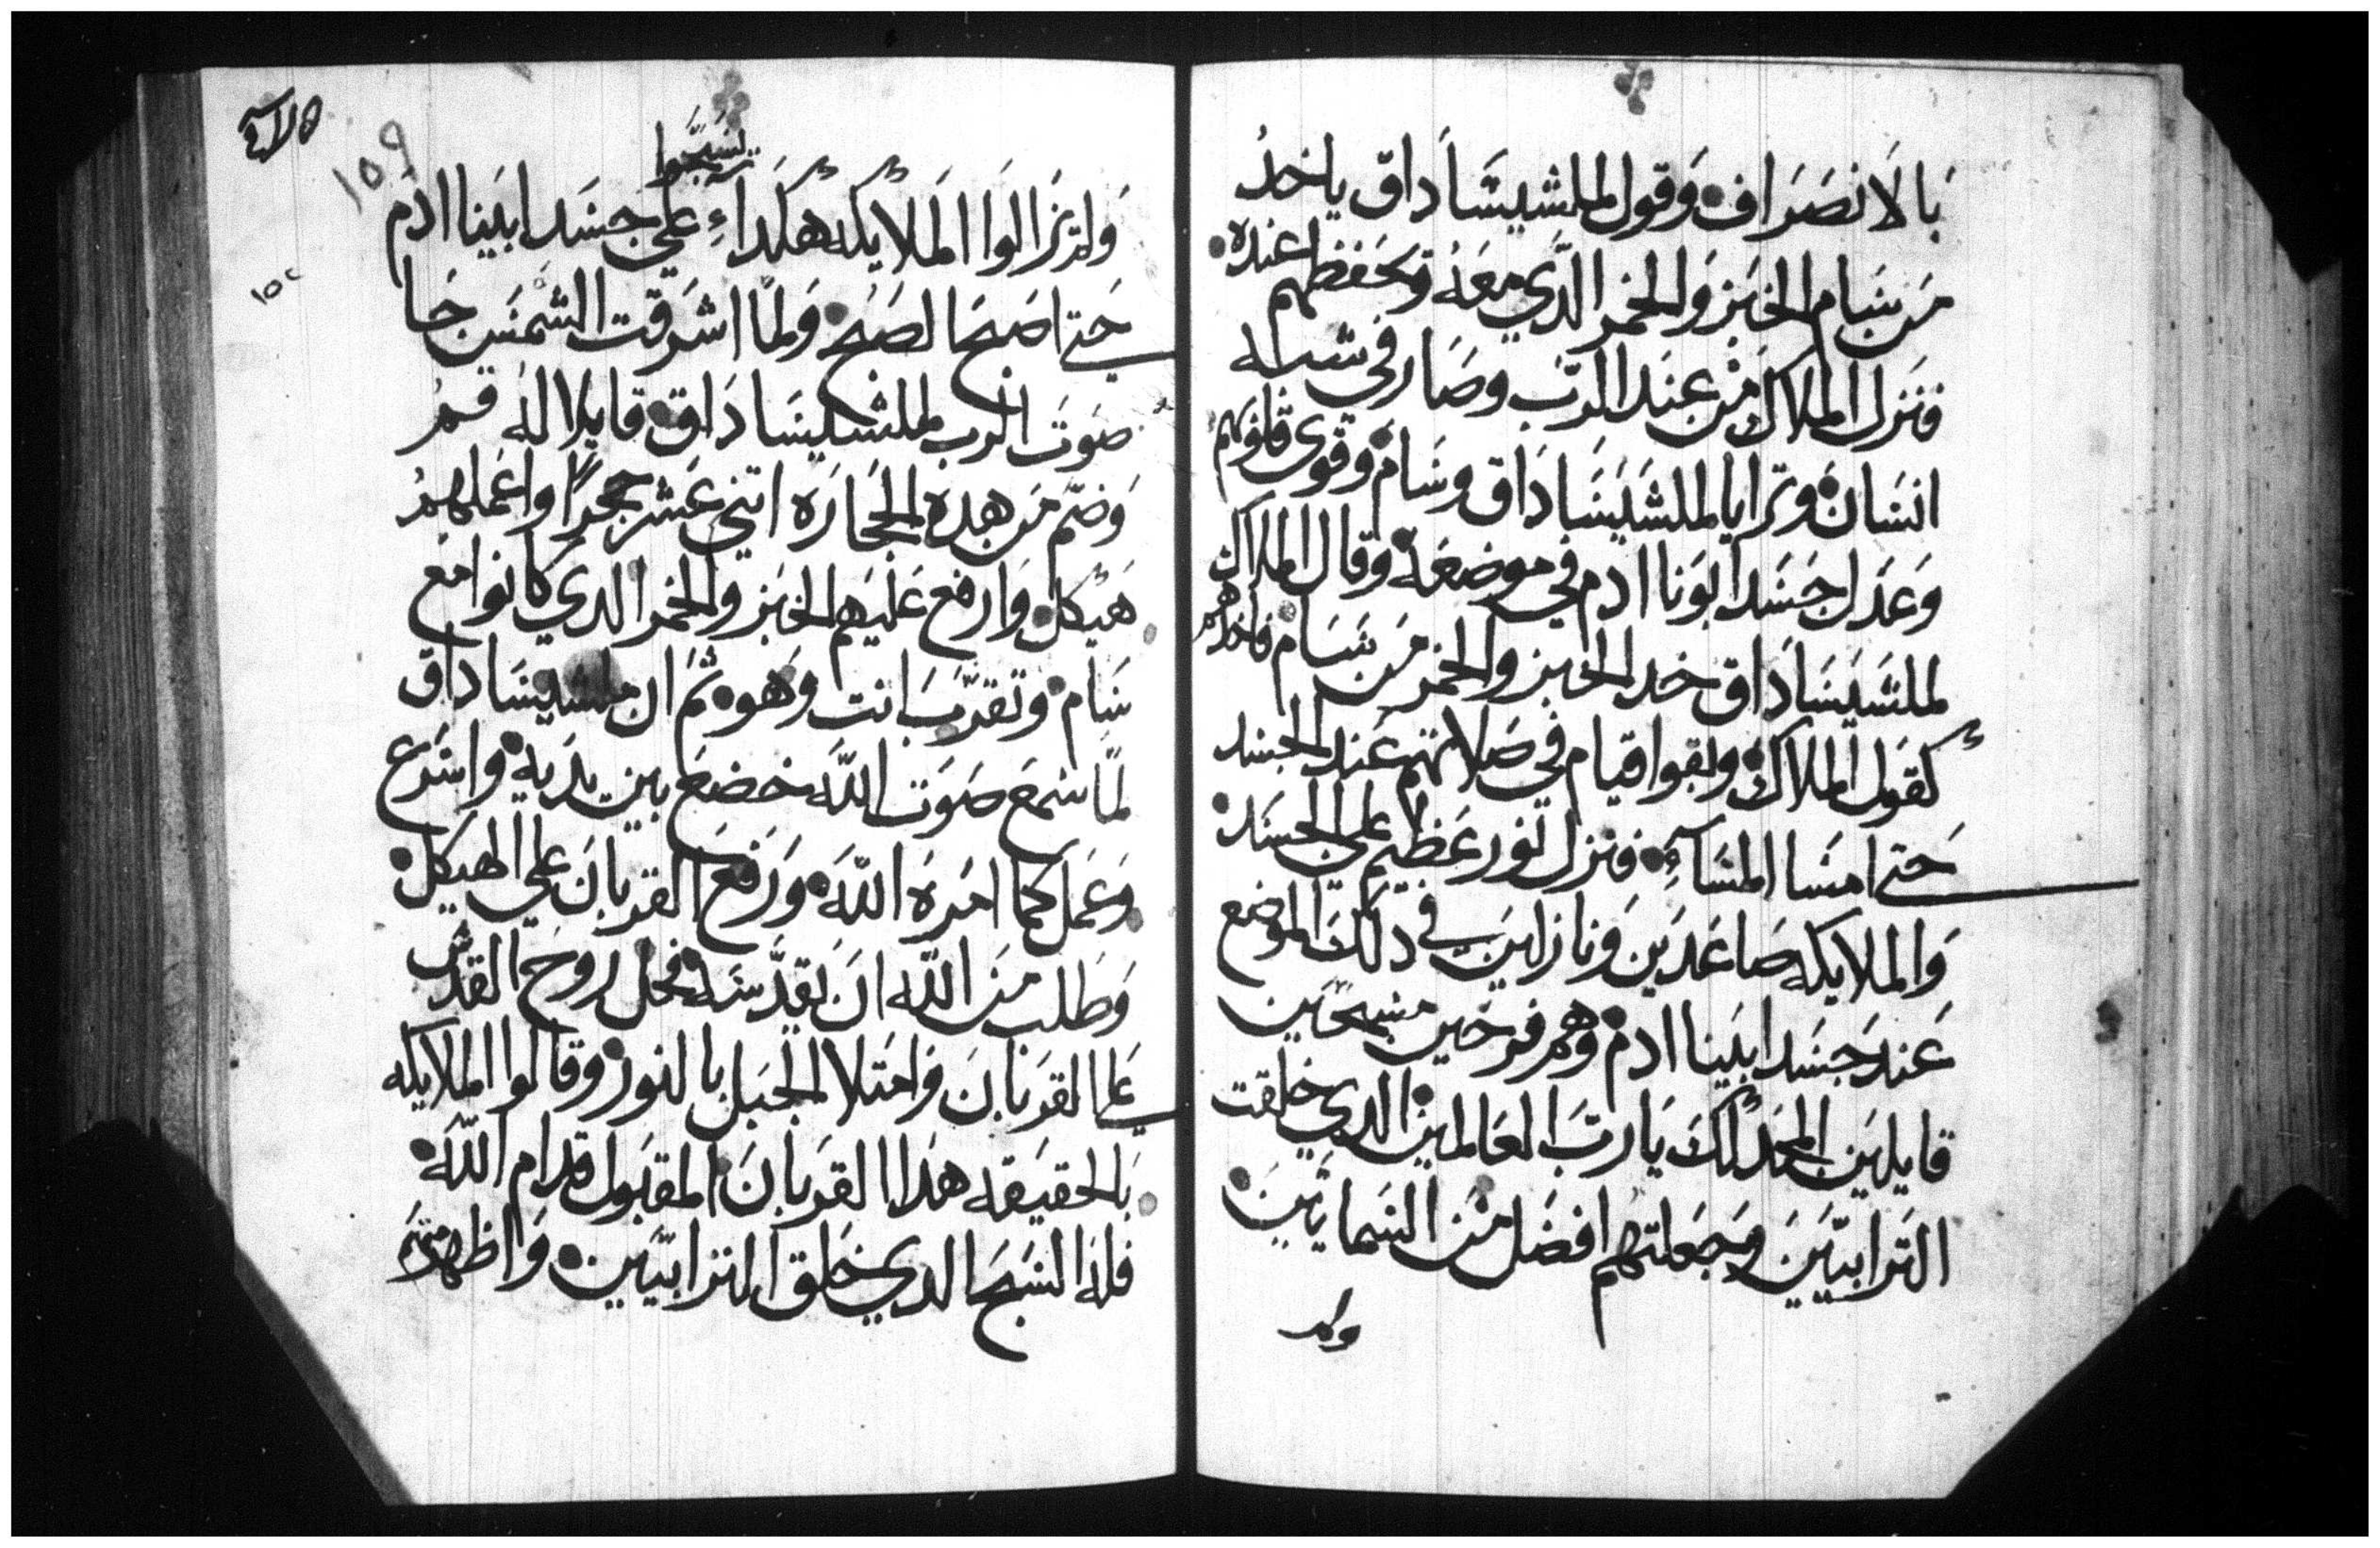 بالانصراف وقول لملشيساداق ياخد
من سام الخبز والخمر الدي معه ويحفظهم عنده
فنزل الملاك من عند الرب وصار في شبه
انسان وترايا لملشيساداق وسام وقوى قلوبهم
وعدل جسد ابونا ادم في موضعه وقال الملاك
لملشيساداق خد الخبز والخمر من سام فاخدهم
كقول الملاك وبقوا قيام في صلاتهم عند الجسد
حتي امسا المسآء فنزل نور عظيم علي الجسد
والملايكه صاعدين ونازلين في دلك الموضع
عند جسد ابينا ادم وهم فرحين مسبحين
قايلين المجد لك يا رب العالمين الدي خلقت
الترابيين وجعلتهم افضل من السمايين
ولم
ولم تزالوا الملايكه هكداء يسبحوا علي جسد ابينا ادم
حتي اصبح الصبح ولما اشرقت الشمس جا
صوت الرب لملشيساداق قايلا له قم
وضم من هده الحجاره اتني عشر حجرا واعملهم
هيكل وارفع عليهم الخبز والخمر الدي كانوا مع
سام وتقرب انت وهو ثم ان ملشيساداق
لما سمع صوت الله خضع بين يديه واسرع
وعمل كما امره الله ورفع القربان علي الهيكل
وطلب من الله ان يقدسه فحل روح القدس
علي القربان وامتلا الجبل بالنور وقالوا الملايكه
بالحقيقه هدا القربان المقبول قدام الله
فله السبح الدي خلق الترابيين واظهر
١٥٩
١٥٢